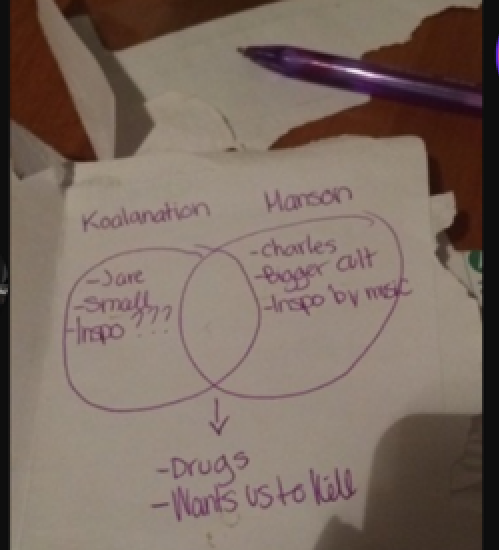 Koalanation
Manson
-Jare
-Small
-Inspo ???
-Charles
-Bigger cult
-Inspo by music
-Drugs
-Wants us to kill